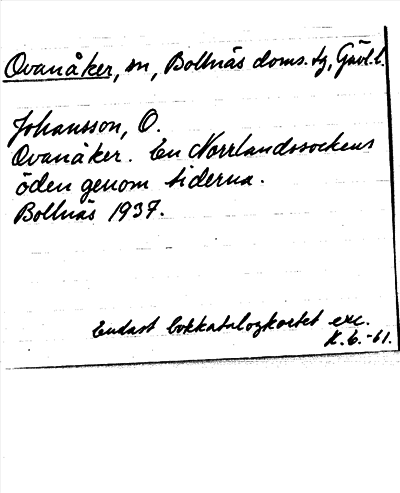 Ovanåker, sn, Bollnäs doms. tg, Gävl.l.
Johansson, O.
Ovanåker. En Norrlandssockens
öden genom tiderna.
Bollnäs 1937.
Endast bokkatalogkortet exc.
K. G. -61.